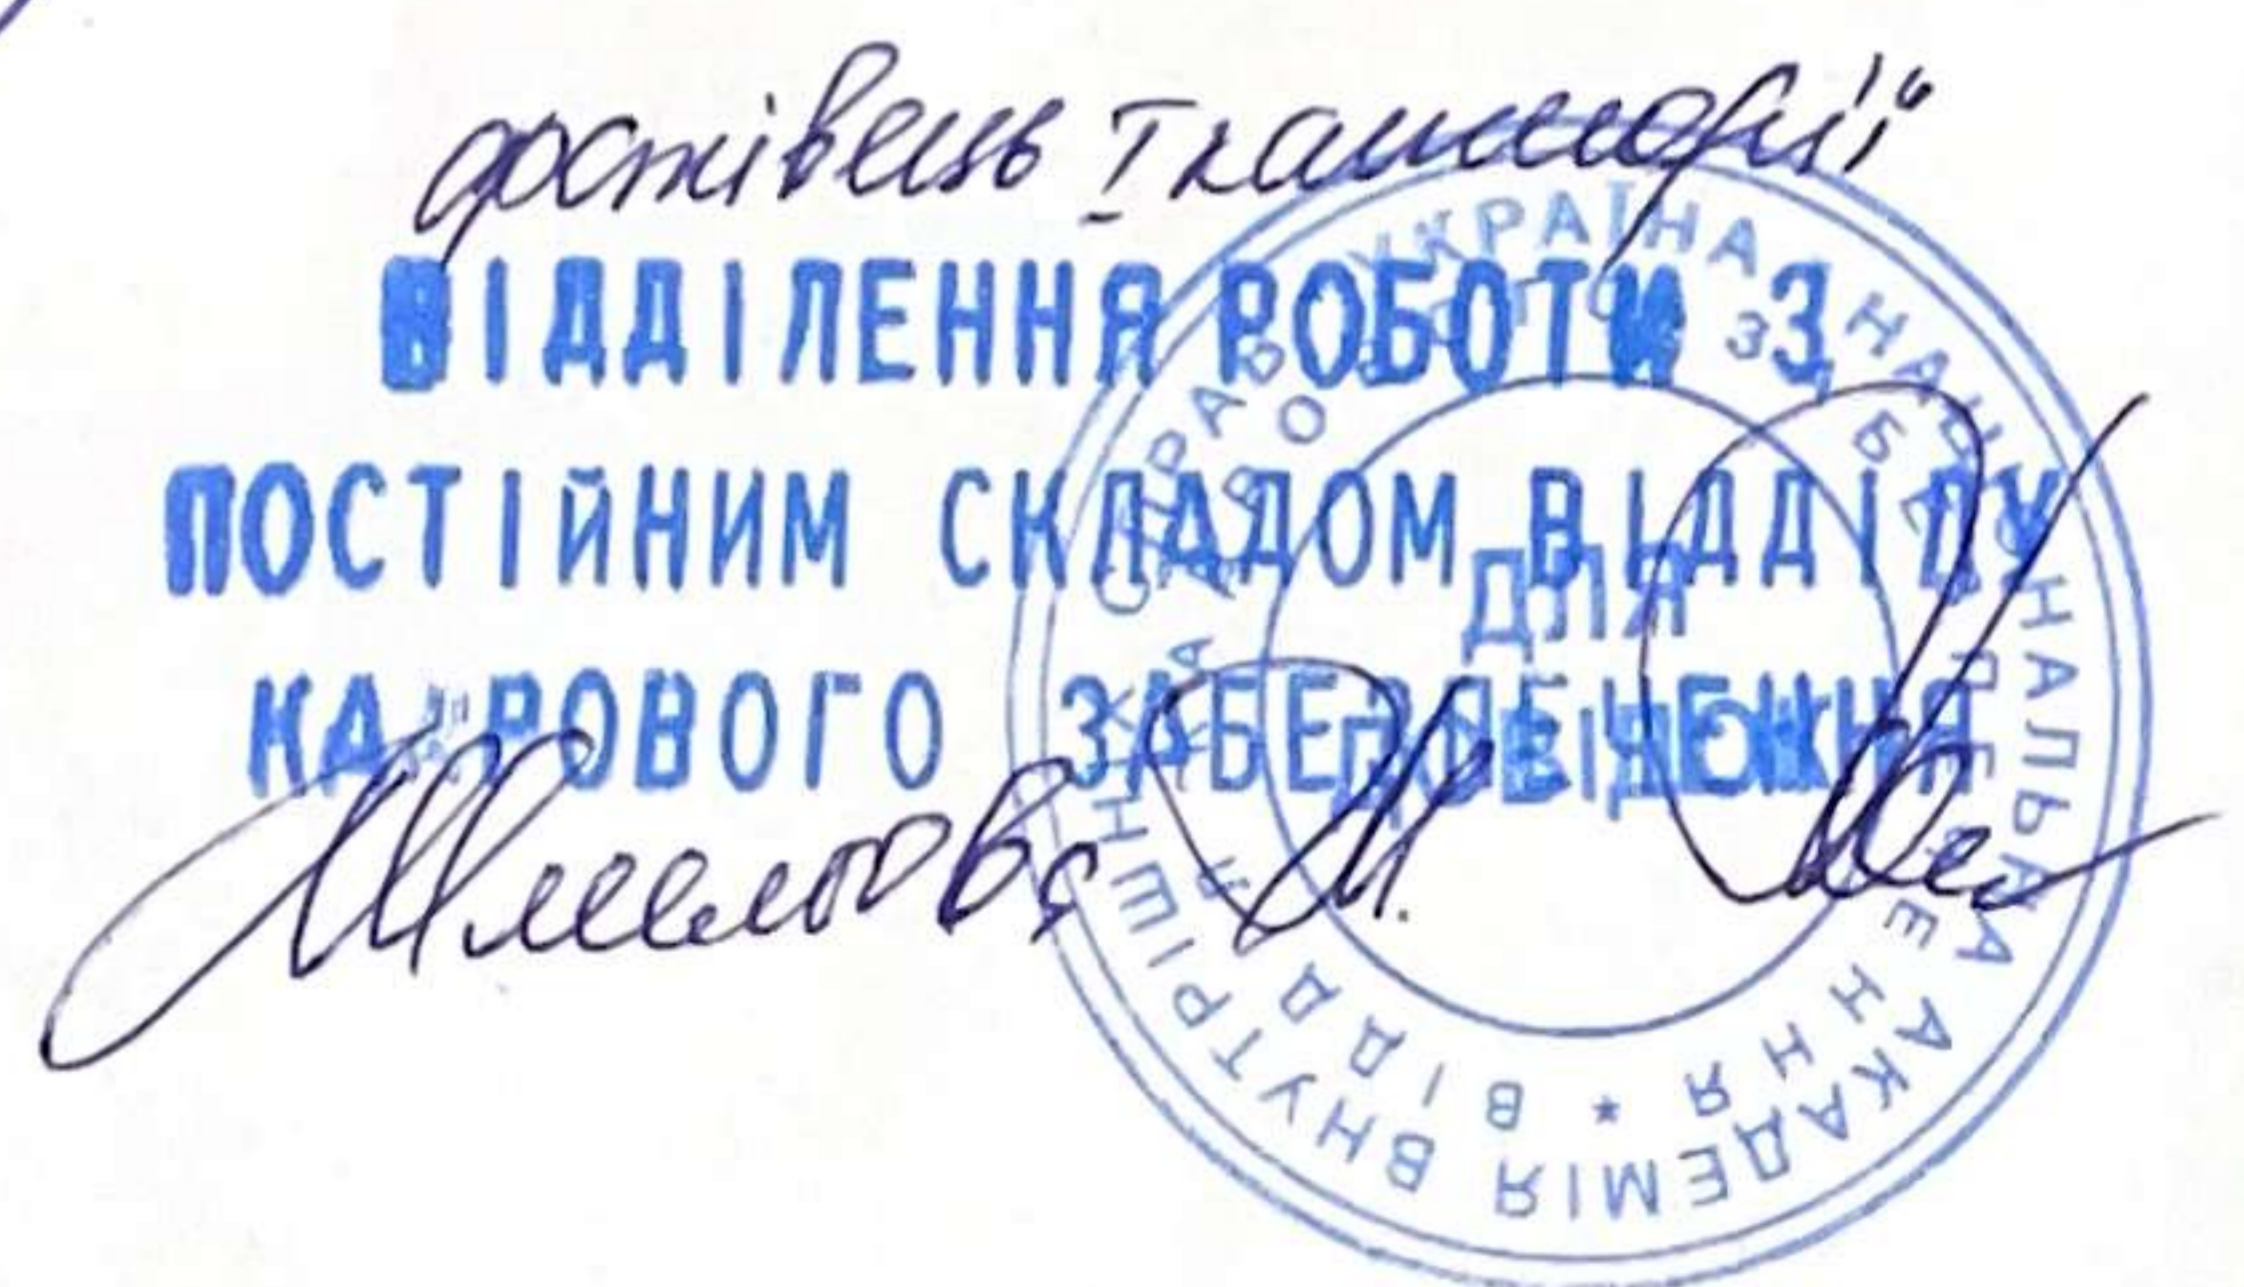 фахівець І категорії
ВІДДІЛЕННЯ РОБОТИ З
ПОСТІЙНИМ СКЛАДОМ ВІДДІЛУ
КАДРОВОГО ЗАБЕЗПЕЧЕННЯ
УКРАЇНА НАЦІОНАЛЬНА АКАДЕМІЯ ВНУТРІШНІХ СПРАВ
ВІДДІЛ КАДРОВОГО ЗАБЕЗПЕЧЕННЯ *
ДЛЯ
ДОВІДОК